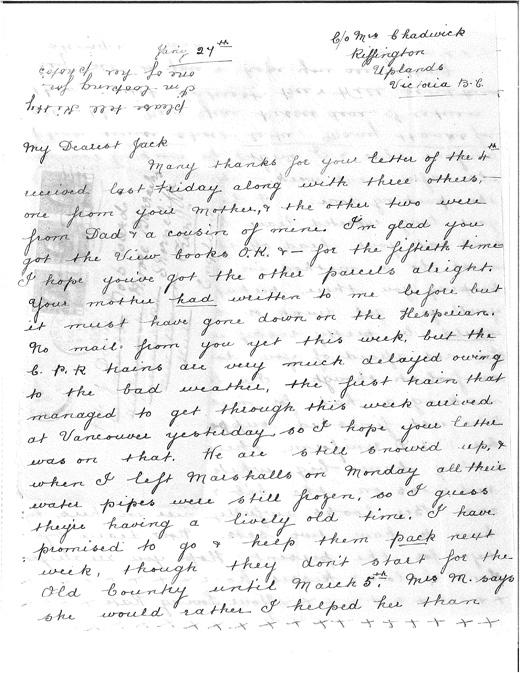 C/o Mrs Chadwick
Riffington
Uplands
Victoria B.C.
Jany 27th
please tell Kitty
I'm looking for
one of her photos
My Dearest Jack
Many thanks for your letter of the 4th
received last Friday along with three others, —
one from your Mother, & the other two were
from Dad & a cousin of mine. I'm glad you
got the View books O.K. & — for the fiftieth time
I hope you've got the other parcels alright.
Your mother had written to me before but
it must have gone down on the Hesperian.
No mail from you yet this week, but the
C.P.R trains are very much delayed owing
to the bad weather, the first train that
managed to get through this week arrived
at Vancouver yesterday so I hope your letter
was on that. We are still snowed up, &
when I left Marshalls on Monday all their
water pipes were still frozen, so I guess
they're having a lively old time. I have
promised to go & help them pack next
week, though they don't start for the
Old County until March 5th. Mrs M. says
she would rather I helped her than
x x x x x x x x x x x x x x x x x x x x